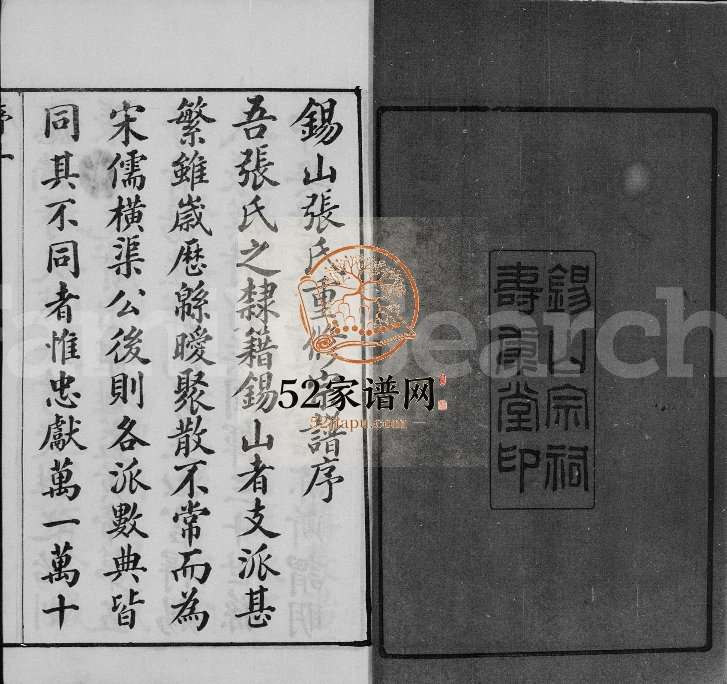 錫山宗祠
壽康堂印
錫山張氏重修宗譜序
吾張氏之隸籍錫山者支派甚
繁雖歲歷緜曖聚散不常而為
宋儒橫渠公後則各派數典皆
同其不同者惟忠獻萬一萬十
序一
52家谱网
52jiapu.com
FamilySearch